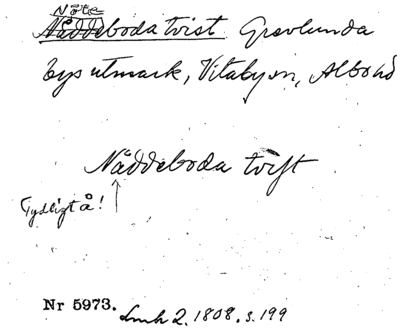 Nöte
Nåddeboda tvist Gravlunda
bys utmark, Vitaby sn, Albo hd
Nåddeboda tvist
Tydligt å!
Nr 5973. Lmh 2. 1808. s. 199